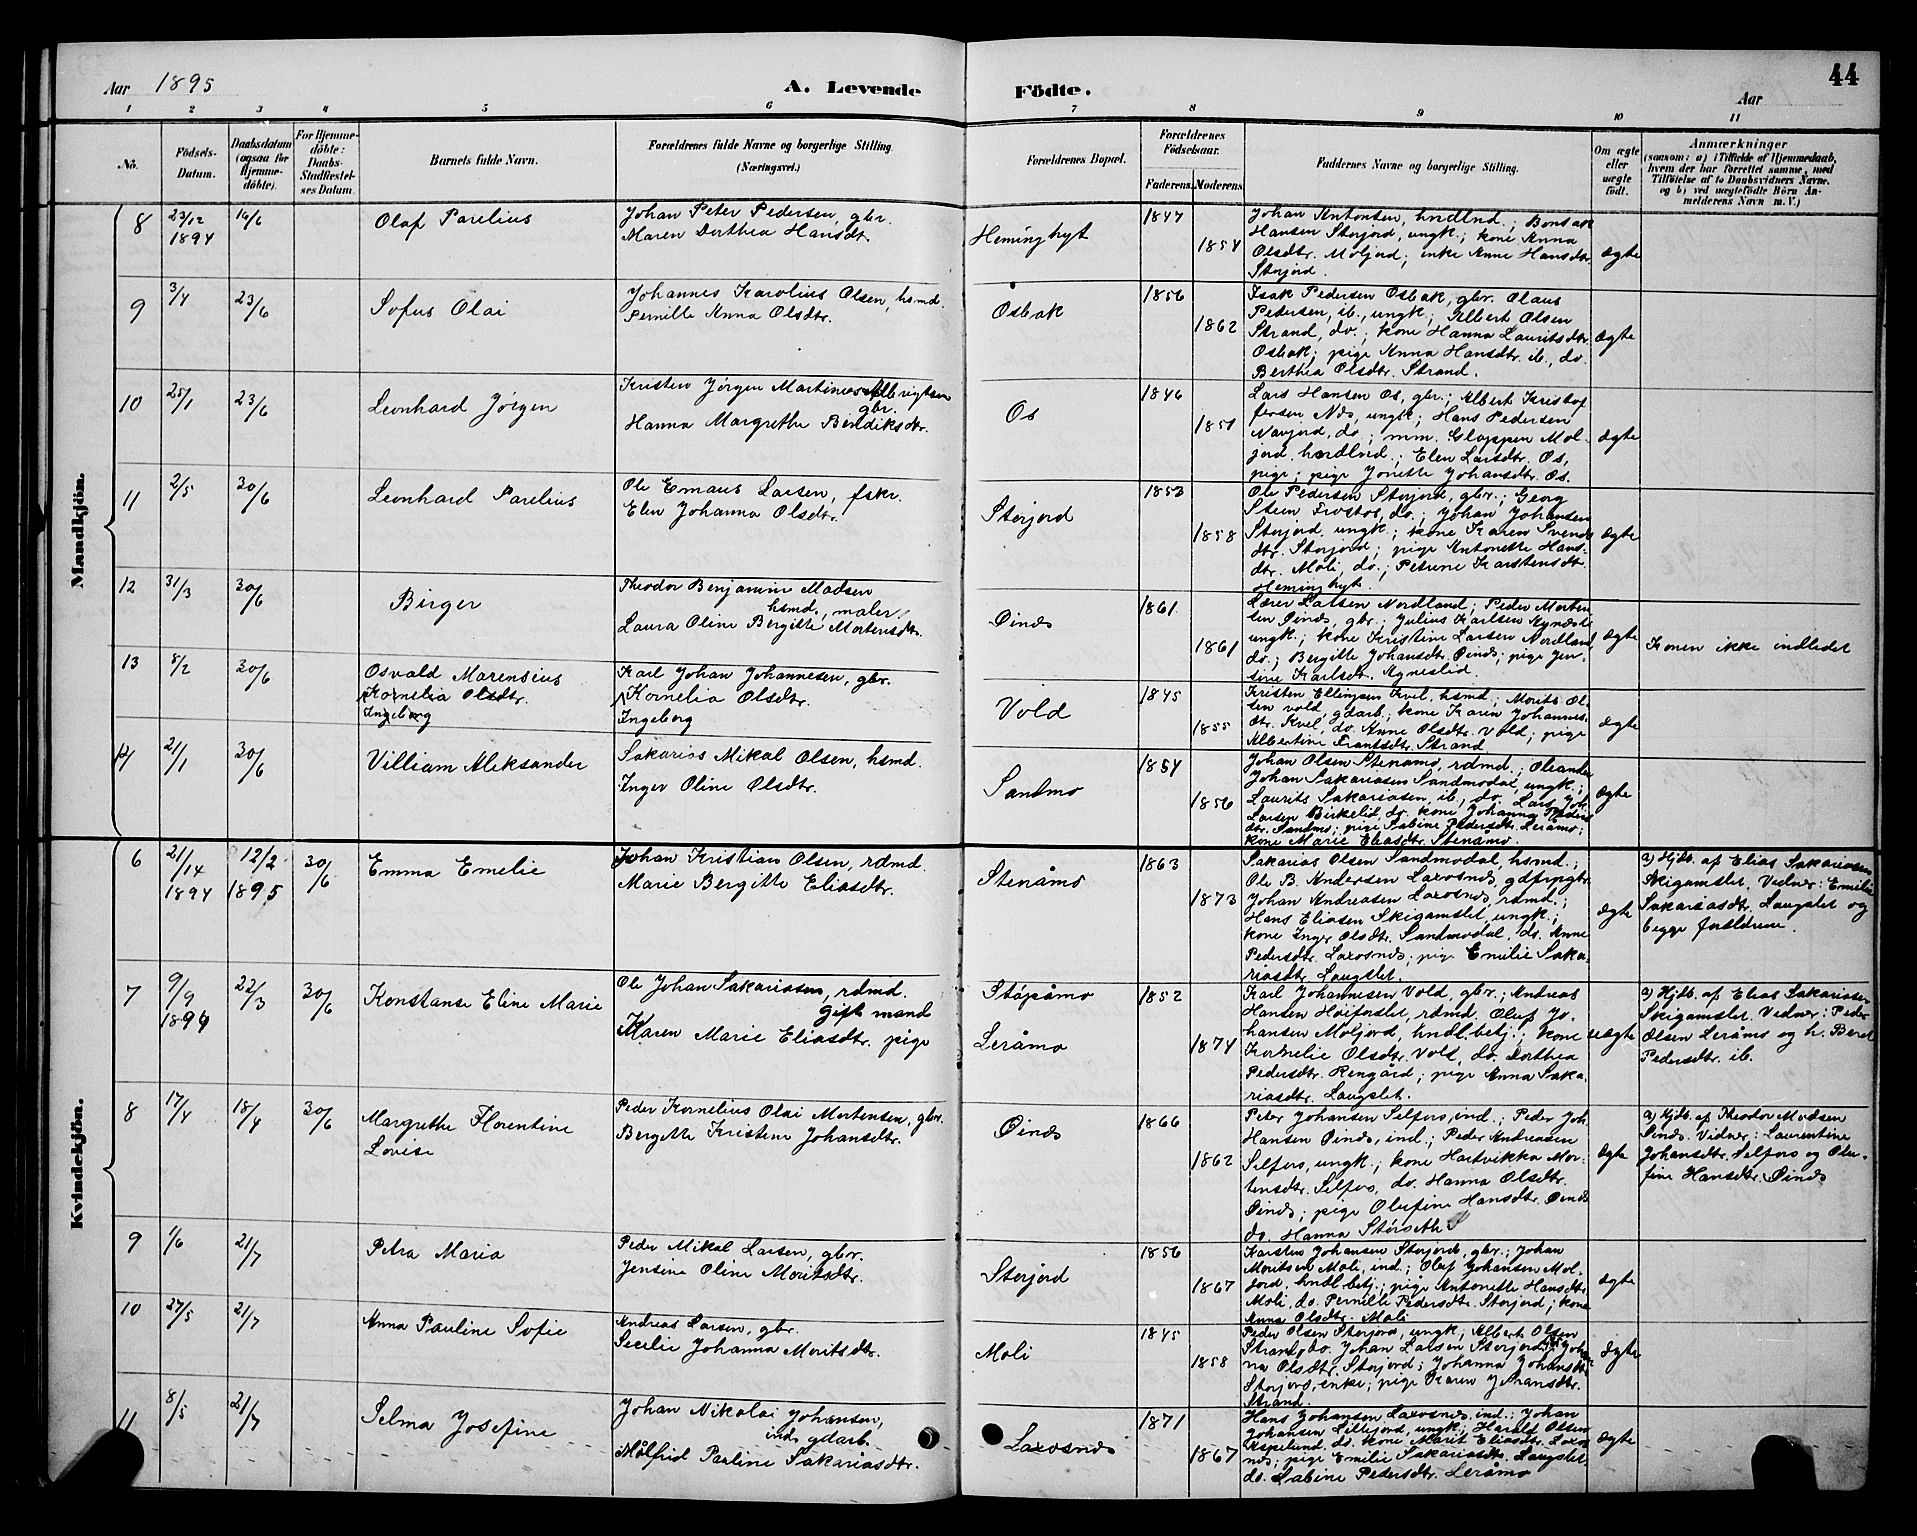 Aar 1895
A. Levende Födte.
Aar
44
1 2 3 4 5 6 7 8 9 10 11
No.
Födsels-
Datum.
Daabsdatum
(ogsaa for
Hjemme-
döbte).
For Hjemme-
döbte:
Daabs-
Stadfæstel-
ses Datum.
Barnets fulde Navn.
Forældrenes fulde Navne og borgerlige Stilling
(Næringsvei.)
Forældrenes Bopæl.
Forældrenes
Födselsaar.
Faderens Moderens
Faddernes Navne og borgerlige Stilling.
Om ægte
eller
uægte
födt.
Anmærkninger
(saasom: a) i Tilfælde af Hjemmedaab,
hvem der har forrettet samme, med
Tilföielse af to Daabsvidners Navne,
og b) ved uægtefödte Börn An-
melderens Navn m. V.)
Mandkjön.
8
23/12
1894
16/6
Olaf Parelius
Johan Peter Pedersen, gbr.
Maren Dorthea Hansdtr.
Heminghyt
1847
1854
Johan Antonsen, hndlnd.; Bonsak
Hansen Storjord, ungk.; kone Anna
Olsdtr. Moljord; enke Anne Hansdtr.
Storjord.
ægte
9
3/4
23/6
Sofus Olai
Johannes Karolius Olsen, hsmd.
Pernille Anna Olsdtr.
Osbak
1856
1862
Isak Pedersen Osbak, gbr. Olaus
Pedersen, ib., ungk; Albert Olsen
Strand, do.; kone Hanna Lauritsdtr.
Osbak; pige Anna Hansdtr. ib., do.
Berthea Olsdtr. Strand.
ægte
10
25/1
23/6
Leonhard Jörgen
Kristen Jörgen Martinus Albrigtsen
gbr.
Hanna Margrethe Bendiksdtr.
Os
1846
1851
Lars Hansen Os, gbr.; Albert Kristof
fersen Næs, ungk; Hans Pedersen
Navjord, do.; mm. Gloppen Mol-
jord, hndlnd.; Elen Larsdtr. Os,
pige; pige Jonette Johansdtr. Os.
ægte
11
2/5
30/6
Leonhard Parelius
Ole Emaus Larsen, fskr.
Elen Johanna Olsdtr.
Storjord
1853
1858
Ole Pedersen Storjord, gbr.; Georg
Steen Frostos, do.; Johan Johansen
Storjord, ungk.; kone Karen Svends
dtr. Storjord; pige Antonette Hans-
dtr. Moli, do.; Petrine Karstensdtr.
Heminghyt.
ægte
12
31/3
30/6
Birger
Theodor Benjamin Madsen
hsmd., maler
Laura Oline Bergitte Mortensdtr.
Öinæs
1861
1861
Lærer Larsen Nordland; Peder Morten
sen Öinæs, gbr.; Julius Karlsen
ungk.; kone Kristine Larsen Nordland
do.; Bergitte Johansdtr. Öinæs; pige Jen-
sine Karlsdtr. Agneslid.
ægte
Konen ikke indledet
13
8/2
30/6
Osvald Marensius
Kornelia Olsdtr.
Ingeborg
Karl Johan Johannesen, gbr.
Kornelia Olsdtr.
Ingeborg
Vold
1845
1855
Kristen Ellingsen Kvel, hsmd; Morits Ol-
sen Vold, gdarb.; kone Karen Johannes-
dtr. Kvel, do. Anne Olsdtr. Vold; pige
Albertine Frantsdtr. Strand
ægte
14
21/1
30/6
Villiam Aleksander
Sakarias Mikal Olsen, hsmd.
Inger Oline Olsdtr.
Sandmo
1854
1856
Johan Olsen Stenåmo, rdmd.; Oleander
Johan Sakariasen Sandmodal, ungk.;
Laurits Sakariasen, ib., do. Lars Joh.
Larsen Birkelid, do. kone Johanna Peders
dtr. Sandmo; pige Sabine Pedersdtr. Leråmo;
kone Marie Eliasdtr. Stenåmo.
ægte
Kvindekjön.
6
21/14
1894
12/2
1895
30/6
Emma Emelie
Johan Kristian Olsen, rdmd.
Marie Bergitte Eliasdtr.
Stenåmo
1863
1873
Sakarias Olsen Sandmodal, hsmd.;
Ole B. Andersen Laxosnæs, gdfmgbr.
Johan Andreasen Laxosnæs, rdmd.;
Hans Eliasen Skigamslet, ungk.;
kone Inger Olsdtr. Sandmodal, do. Anne
Pedersdtr. Laxosnæs; pige Emilie Saka-
riasdtr. Langslet.
ægte
a) Hjdb. af Elias Sakariasen
Skigamslet. Vidner: Emilie
Sakariasdtr. Langslet og
begge forældrene.
7
9/9
1894
22/3
30/6
Konstanse Eline Marie
Ole Johan Sakariasen, rdmd.
gift mand
Karen Marie Eliasdtr. pige
Stöpåmo
Leråmo
1852
1874
Karl Johannesen Vold, gbr.; Andreas
Hansen Höiforslet, rdmd. Oluf Jo-
hansen Moljord, hndl.betj.; kone
Kornelie Olsdtr. Vold, do. Dorthea
Pedersdtr. Rengård; pige Anna Saka-
riasdtr. Langslet.
uægte
a) Hjdb. af Elias Sakariasen
Skigamslet. Vidner: Peder
Olsen Leråmo og h. Beret
Pedersdtr. ib.
8
17/4
18/4
30/6
Margrethe Florentine
Lovise
Peder Kornelius Olai Mortensen, gbr.
Bergitte Kristine Johansdtr.
Öinæs
1866
1862
Peter Johansen Selfors, ind.; Peder Joh.
Hansen Öinæs, ind.; Peder Andreasen
Selfors, ungk.; kone Hartvikka Mor-
tensdtr. Selfors, do. Hanna Olsdtr.
Öinæs; pige Olufine Hansdtr. Öinæs
do. Hanna Störseth
ægte
a) Hjdb. af Theodor Madsen
Öinæs. Vidner: Laurentine
Johansdtr. Selfors og Olu-
fine Hansdtr. Öinæs
9
1/6
21/7
Petra Maria
Peder Mikal Larsen, gbr.
Jensine Oline Moritsdtr.
Storjord
1856
1867
Karsten Johansen Storjord, gbr.; Johan
Moritsen Moli, ind.; Oluf Johansen Mol-
jord, hndl.betj.; pige Antonette Hansdtr.
Moli, do. Pernille Pedersdtr. Storjord; kone
Anna Olsdtr. Moli
ægte
10
27/5
21/7
Anna Pauline Sofie
Andreas Larsen, gbr.
Secilie Johanna Moritsdtr.
Moli
1845
1858
Peder Olsen Storjord, ungk; Albert Olsen
Strand, do. Johan Larsen Storjord, Johan-
na Olsdtr. Storjord; Johanna Johansdtr.
Storjord, enke; pige Karen Johansdtr.
Strand.
ægte
11
8/5
21/7
Selma Josefine
Johan Nikolai Johansen,
ind. gdarb.
Målfrid Pauline Sakariasdtr.
Laxosnæs
1871
1867
Hans Johansen Laxosnæs, ind.; Johan
Johansen Lillejord, ungk.; Harald Olsen
Aspelund, do. kone Marit Eliasdtr. Laxos-
næs; pige Emilie Sakariasdtr. Langslet,
do. Sabine Pedersdtr. Leråmo
ægte